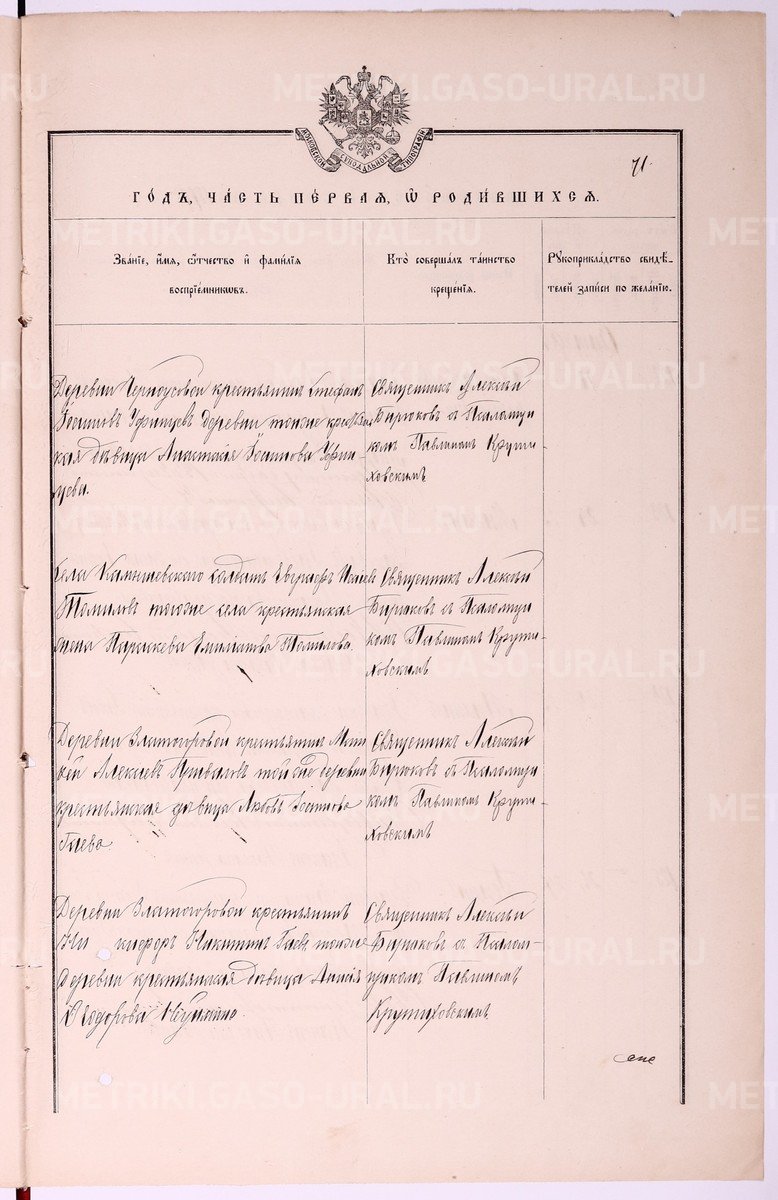 METRIKI.GASO-URAL.RU
МОСКОВСКОЙ СУНОДАЛЬНОЙ ТИПОГРАФІИ
71.
ГОДЪ, ЧАСТЬ ПЕРВАЯ, Ѡ РОДИВШИХСЯ.
Званіе, имя, отчество и фамилія
воспріемниковъ.
Кто совершалъ таинство
крещенія.
Рукоприкладство свидѣ-
телей записи по желанію.
Деревни Черноусовой крестьянинъ Стефанъ
Іосифовъ Уфинцевъ деревни тоже крестьян
ская дѣвица Анастасія Іосифова Уфин
цева.
Священникъ Алексѣй
Бирюковъ съ Псаломщи
комъ Павлиномъ Крути-
ховскимъ
Села Камышевскаго солдатъ Исаевъ
Томиловъ тогоже села крестьянская
жена Параскева Емиліанова Томилова.
Священникъ Алексѣй
Бирюковъ съ Псаломщи
комъ Павлиномъ Крути-
ховскимъ
Деревни Златогоровой крестьянинъ Мат
ѳей Алексѣевъ Приваловъ той же деревни
крестьянская дѣвица Любовь Іосифова
Гаева
Священникъ Алексѣй
Бирюковъ съ Псаломщи
комъ Павлиномъ Крути-
ховскимъ
Деревни Златогоровой крестьянинъ
Ни кифоръ Никитинъ Гаевъ тоже
деревни крестьянская дѣвица Анисія
Ѳеодорова
Священникъ Алексѣй
Бирюковъ съ Псалом-
щикомъ Павлиномъ
Крутиховскимъ.